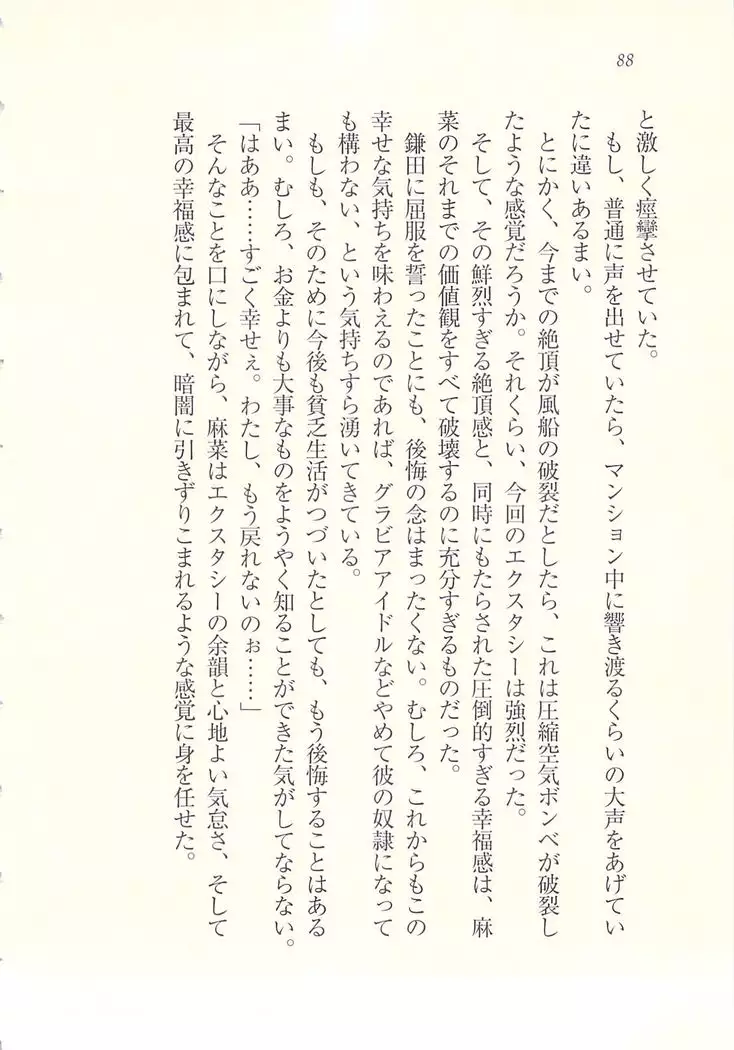 88
と激しく痙攣させていた。
もし、普通に声を出せていたら、マンション中に響き渡るくらいの大声をあげてい
たに違いあるまい。
とにかく、今までの絶頂が風船の破裂だとしたら、これは圧縮空気ボンベが破裂し
たような感覚だろうか。それくらい、今回のエクスタシーは強烈だった。
そして、その鮮烈すぎる絶頂感と、同時にもたらされた圧倒的すぎる幸福感は、麻
菜のそれまでの価値観をすべて破壊するのに充分すぎるものだった。
鎌田に屈服を誓ったことにも、後悔の念はまったくない。むしろ、これからもこの
幸せな気持ちを味わえるのであれば、グラビアアイドルなどやめて彼の奴隷になって
も構わない、という気持ちすら湧いてきている。
もしも、そのために今後も貧乏生活がつづいたとしても、もう後悔することはある
まい。むしろ、お金よりも大事なものをようやく知ることができた気がしてならない。
「はああ……すごく幸せぇ。わたし、もう戻れないのぉ……」
そんなことを口にしながら、麻菜はエクスタシーの余韻と心地よい気怠さ、そして
最高の幸福感に包まれて、暗闇に引きずりこまれるような感覚に身を任せた。